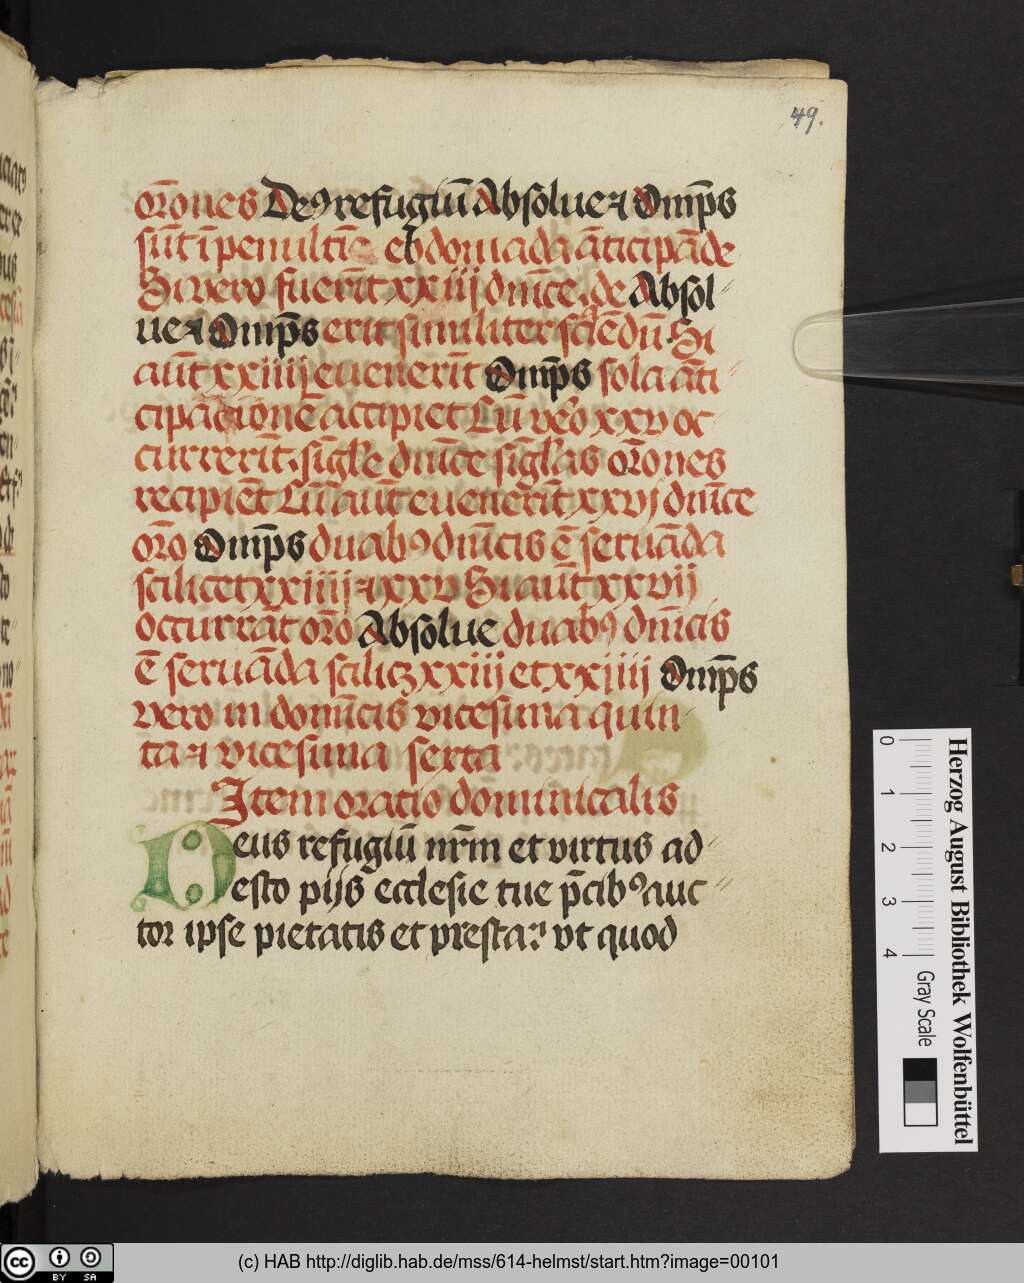 49.
or̄ones Deꝰ refugiū Absolue ⁊ Om̄ps
sūt ī penultīa ebdomada āticipāde
Si vero fuerīt xxiij dnīce, de Absol〃
ue ⁊ Om̄ps erit similiter sciēdū. Si
aūt xxiiij euenerīt Om̄ps sola āti〃
cipacionē accipiet Cū v̄o xxv oc〃
currerīt. sigl̄e dnīce sigl̄as or̄ones
recipiēt Cū aūt euenerīt xxvj dnīce
or̄o Om̄ps duabꝰ dnīcis ē seruāda
scilicet xxiiij ⁊ xxv Si aūt xxvij
occurrāt or̄o Absolue duabꝰ dnīcis
ē seruāda scilicꝫ xxiij et xxiiij Om̄ps
vero in domīcis vicesima quin〃
ta ⁊ vicesima sexta
Item oratio dominicalis
Deus refugiū nr̄m et virtus ad〃
esto pijs ecclesie tue p̄cibꝰ auc〃
tor ipse pietatis et presta? vt quod
Herzog August Bibliothek Wolfenbüttel
0 1 2 3 4 Gray Scale
cc BY SA
(c) HAB http://diglib.hab.de/mss/614-helmst/start.htm?image=00101